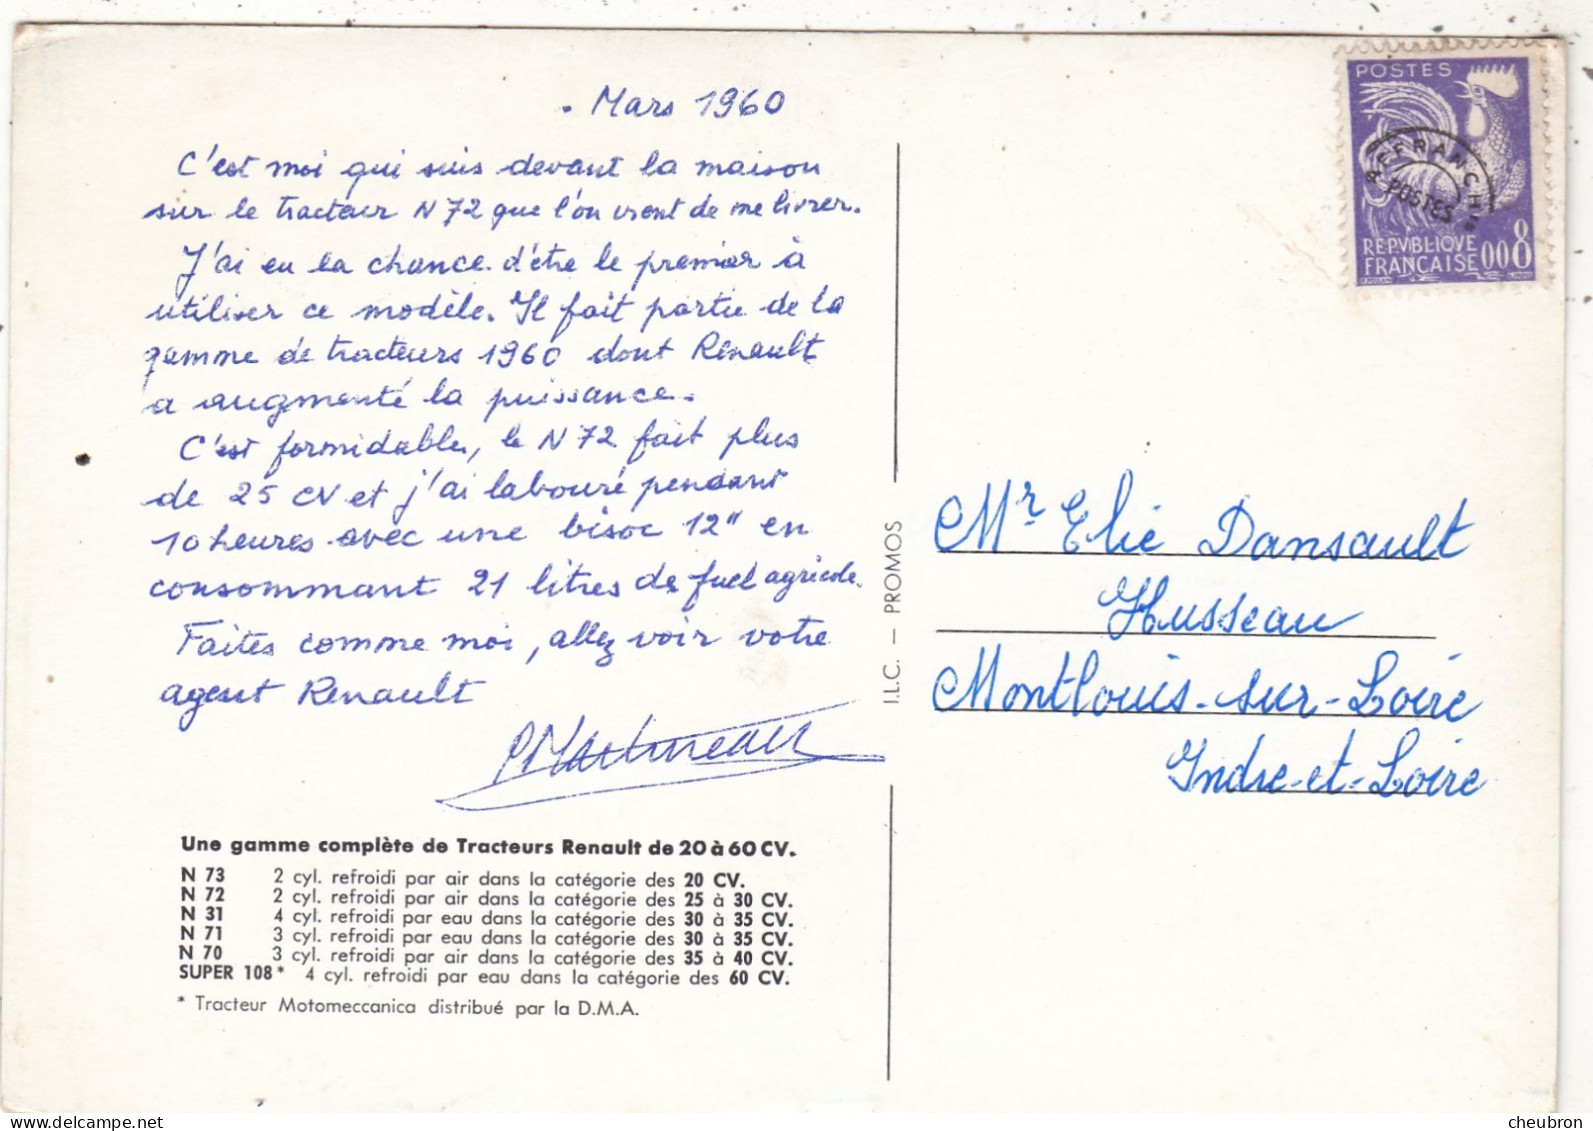 . Mars 1960
C'est moi qui suis devant la maison
sur le tracteur N 72 que l'on vient de me livrer.
J'ai eu la chance d'être le premier à
utiliser ce modèle. Il fait partie de la
gamme de tracteurs 1960 dont Renault
a augmenté la puissance.
C'est formidable, le N 72 fait plus
de 25 CV et j'ai labouré pendant
10 heures avec une bisoc 12" en
consommant 21 litres de fuel agricole.
Faites comme moi, allez voir votre
agent Renault
PMartineau
Une gamme complète de Tracteurs Renault de 20 à 60 CV.
N 73 2 cyl. refroidi par air dans la catégorie des 20 CV.
N 72 2 cyl. refroidi par air dans la catégorie des 25 à 30 CV.
N 31 4 cyl. refroidi par eau dans la catégorie des 30 à 35 CV.
N 71 3 cyl. refroidi par eau dans la catégorie des 30 à 35 CV.
N 70 3 cyl. refroidi par air dans la catégorie des 35 à 40 CV.
SUPER 108* 4 cyl. refroidi par eau dans la catégorie des 60 CV.
* Tracteur Motomeccanica distribué par la D.M.A.
I.L.C. — PROMOS
POSTES
AFFRANCHts
POSTES
REPVBLIQVE
FRANÇAISE 0,08
Mr Elie Dansault
Husseau
Montlouis-sur-Loire
Indre-et-Loire
cheubron
www.delcampe.net